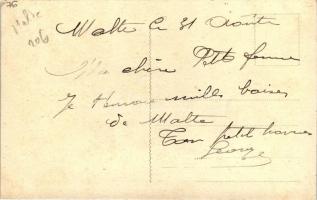 76
Malte le 31 Aoûte
Ma chère Ptte femme
Je t'envoie mille baises
de Malte
Ton petit homme
George